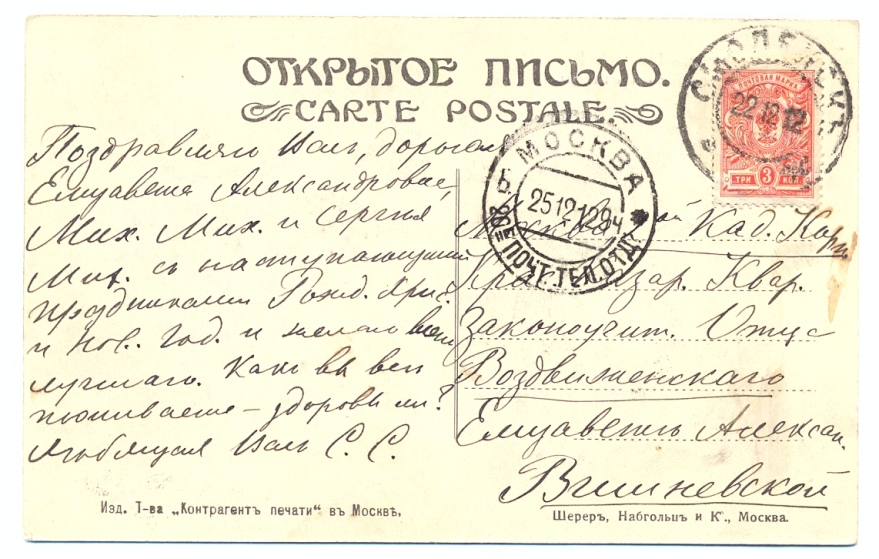 ОТКРЫТОЕ ПИСЬМО.
CARTE POSTALE.
ПОЧТОВАЯ МАРКА
ТРИ 3 КОП
СМОЛЕНСКЪ
22 12 12
Б. МОСКВА
25 12 12 9 Ч
20Е ПОЧТ. ТЕЛ. ОТД.
Поздравляю Васъ, дорогая
Елизавета Александровна,
Мих. Мих. и Сергея
Мих. съ наступающими
праздниками Рожд. Хри.
и Нов. Год. и желаю всего
лучшаго. Какъ вы все
поживаете – здоровы ли?
Любящая Васъ С. С.
Москва Кад. Корп.
Казар. Квар.
Законоучит. Отца
Воздвиженскаго
Елизаветѣ Алексан.
Вишневской
Изд. Т-ва „Контрагентъ печати“ въ Москвѣ.
Шереръ, Набгольцъ и Кº., Москва.